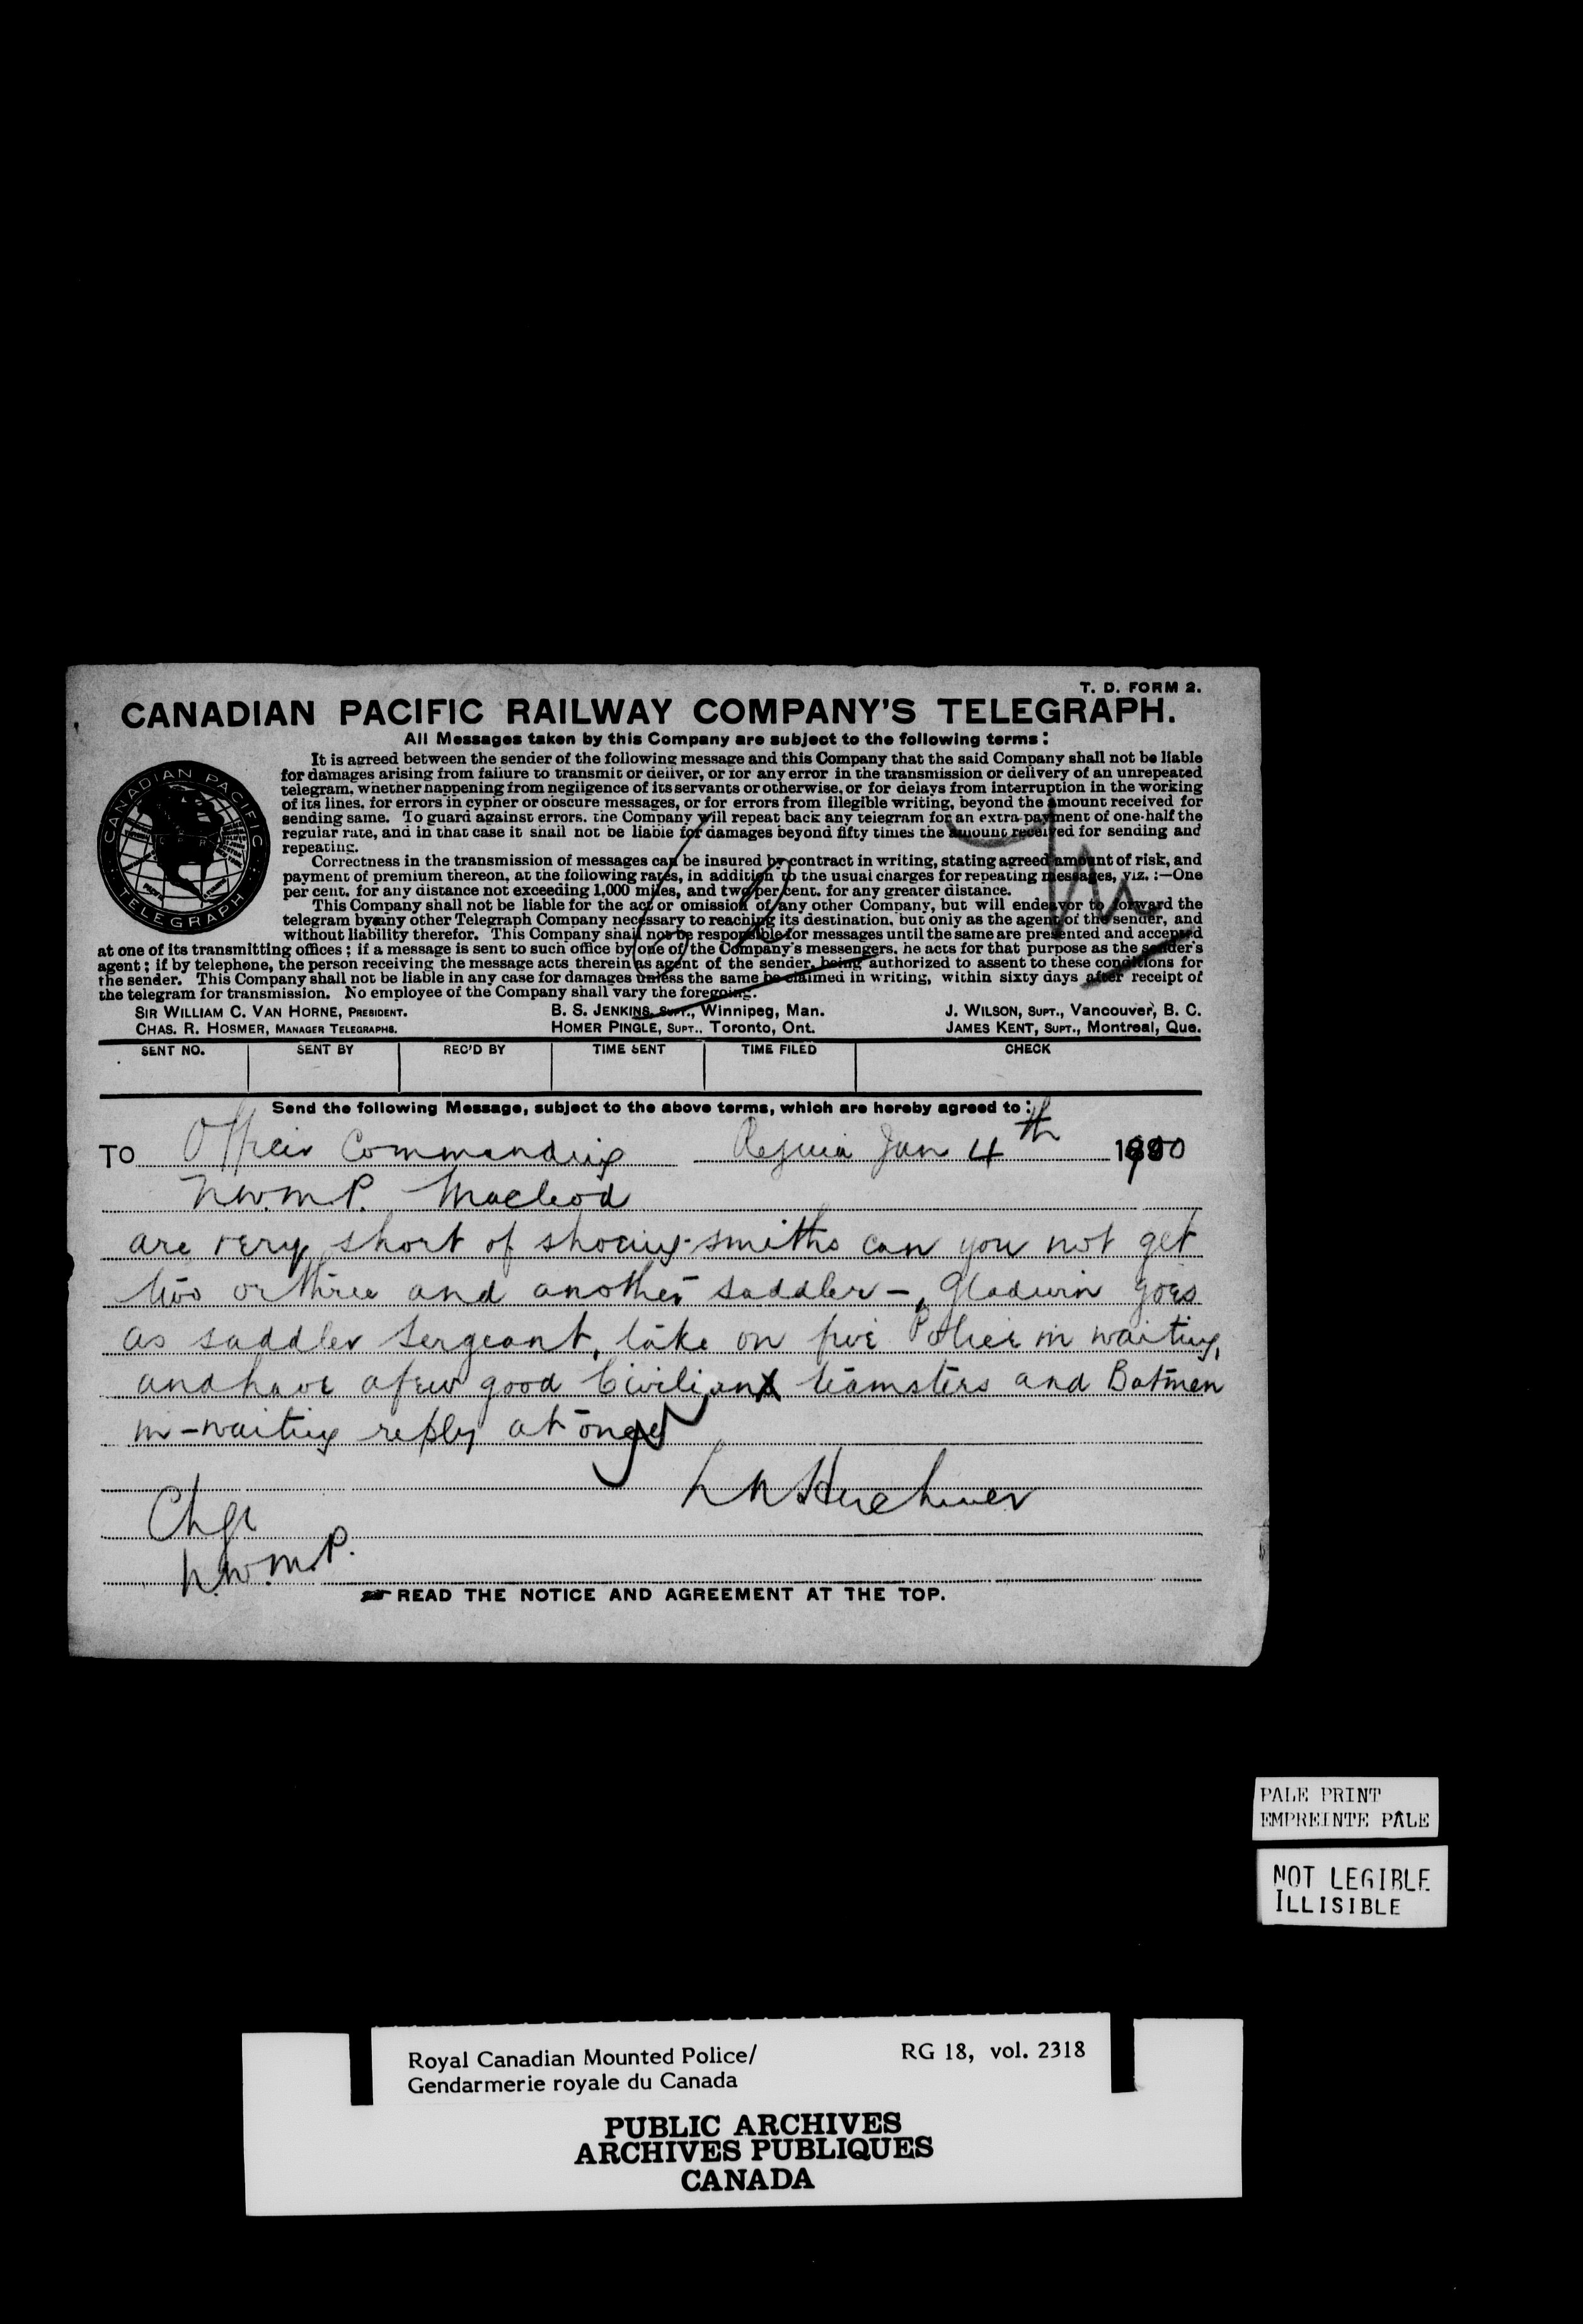 T. D. FORM 2.
CANADIAN PACIFIC RAILWAY COMPANY'S TELEGRAPH.
All Messages taken by this Company are subject to the following terms:
It is agreed between the sender of the following message and this Company that the said Company shall not be liable
for damages arising from failure to transmit or deliver, or for any error in the transmission or delivery of an unrepeated
telegram, whether happening from negligence of its servants or otherwise, or for delays from interruption in the working
of its lines, for errors in cypher or obscure messages, or for errors from illegible writing, beyond the amount received for
sending same. To guard against errors, the Company will repeat back any telegram for an extra payment of one-half the
regular rate, and in that case it shall not be liable for damages beyond fifty times the amount received for sending and
repeating.
Correctness in the transmission of messages can be insured by contract in writing, stating agreed amount of risk, and
payment of premium thereon, at the following rates, in addition to the usual charges for repeating messages, viz. :—One
per cent. for any distance not exceeding 1,000 miles, and two per cent. for any greater distance.
This Company shall not be liable for the act or omission of any other Company, but will endeavor to forward the
telegram by any other Telegraph Company necessary to reaching its destination, but only as the agent of the sender, and
without liability therefor. This Company shall not be responsible for messages until the same are presented and accepted
at one of its transmitting offices ; if a message is sent to such office by one of the Company's messengers, he acts for that purpose as the sender's
agent ; if by telephone, the person receiving the message acts therein as agent of the sender, being authorized to assent to these conditions for
the sender. This Company shall not be liable in any case for damages unless the same be claimed in writing, within sixty days after receipt of
the telegram for transmission. No employee of the Company shall vary the foregoing.
CANADIAN PACIFIC TELEGRAPH
SIR WILLIAM C. VAN HORNE, PRESIDENT. B. S. JENKINS, SUPT., Winnipeg, Man. J. WILSON, SUPT., Vancouver, B. C.
CHAS. R. HOSMER, MANAGER TELEGRAPHS. HOMER PINGLE, SUPT., Toronto, Ont. JAMES KENT, SUPT., Montreal, Que.
SENT NO. SENT BY REC'D BY TIME SENT TIME FILED CHECK
Send the following Message, subject to the above terms, which are hereby agreed to:
TO Officer Commanding Regina Jan 4th 1900
N.W.M.P. Macleod
are very short of shoeing-smiths can you not get
two or three and another saddler - Gladwin goes
as saddler Sergeant, take on five Police in waiting,
and have a few good Civilian teamsters and Batmen
in-waiting reply at once
L W Herchmer
Chge
N.W.M.P.
READ THE NOTICE AND AGREEMENT AT THE TOP.
PALE PRINT
EMPREINTE PÂLE
NOT LEGIBLE
ILLISIBLE
Royal Canadian Mounted Police/ RG 18, vol. 2318
Gendarmerie royale du Canada
PUBLIC ARCHIVES
ARCHIVES PUBLIQUES
CANADA